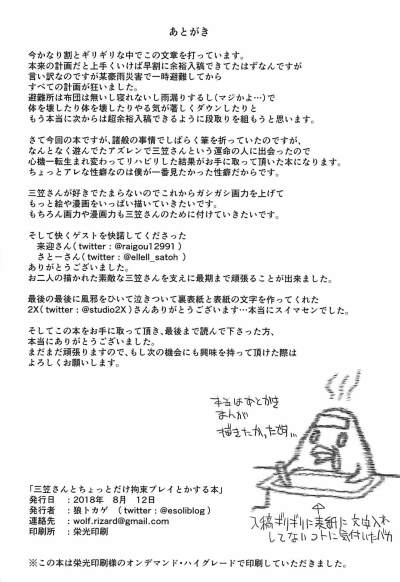 あとがき
今かなり割とギリギリな中でこの文章を打っています。
本来の計画だと上手くいけば早割に余裕入稿できてたはずなんですが
言い訳なのですが某豪雨災害で一時避難してから
すべての計画が狂いました。
避難所は布団は無いし寝れないし雨漏りするし（マジかよ…）で
体を壊したり体を壊したりやる気が著しくダウンしたりと
もう本当に次からは超余裕入稿できるように段取りを組もうと思います。
さて今回の本ですが、諸般の事情でしばらく筆を折っていたのですが、
なんとなく遊んでたアズレンで三笠さんという運命の人に出会ったので
心機一転生まれ変わってリハビリした結果がお手に取って頂いた本になります。
ちょっとアレな性癖なのは僕が一番見たかった性癖だからです。
三笠さんが好きでたまらないのでこれからガシガシ画力を上げて
もっと絵や漫画をいっぱい描いていきたいです。
もちろん画力や漫画力も三笠さんのために付けていきたいです。
そして快くゲストを快諾してくださった
来迎さん（twitter：@raigou12991）
さとーさん（twitter：@ellell_satoh ）
ありがとうございました。
お二人の描かれた素敵な三笠さんを支えに最期まで頑張ることが出来ました。
最後の最後に風邪をひいて泣きついて裏表紙と表紙の文字を作ってくれた
2X（twitter：@studio2X）さんありがとうございます…本当にスイマセンでした。
そしてこの本をお手に取って頂き、最後まで読んで下さった方、
本当にありがとうございました。
まだまだ頑張りますので、もし次の機会にも興味を持って頂けた際は
よろしくお願いします。
本当はあとがき
まんが
描きたかったです…
「三笠さんとちょっとだけ拘束プレイとかする本」
発行日　：2018年　8月　12日
発行者　：狼トカゲ　（twitter：@esoliblog）
連絡先　：wolf.rizard@gmail.com
印刷所　：栄光印刷
入稿ギリギリに表紙に文字入れ
してないコトに気付いたバカ
※この本は栄光印刷様のオンデマンド・ハイグレードで印刷していただきました。